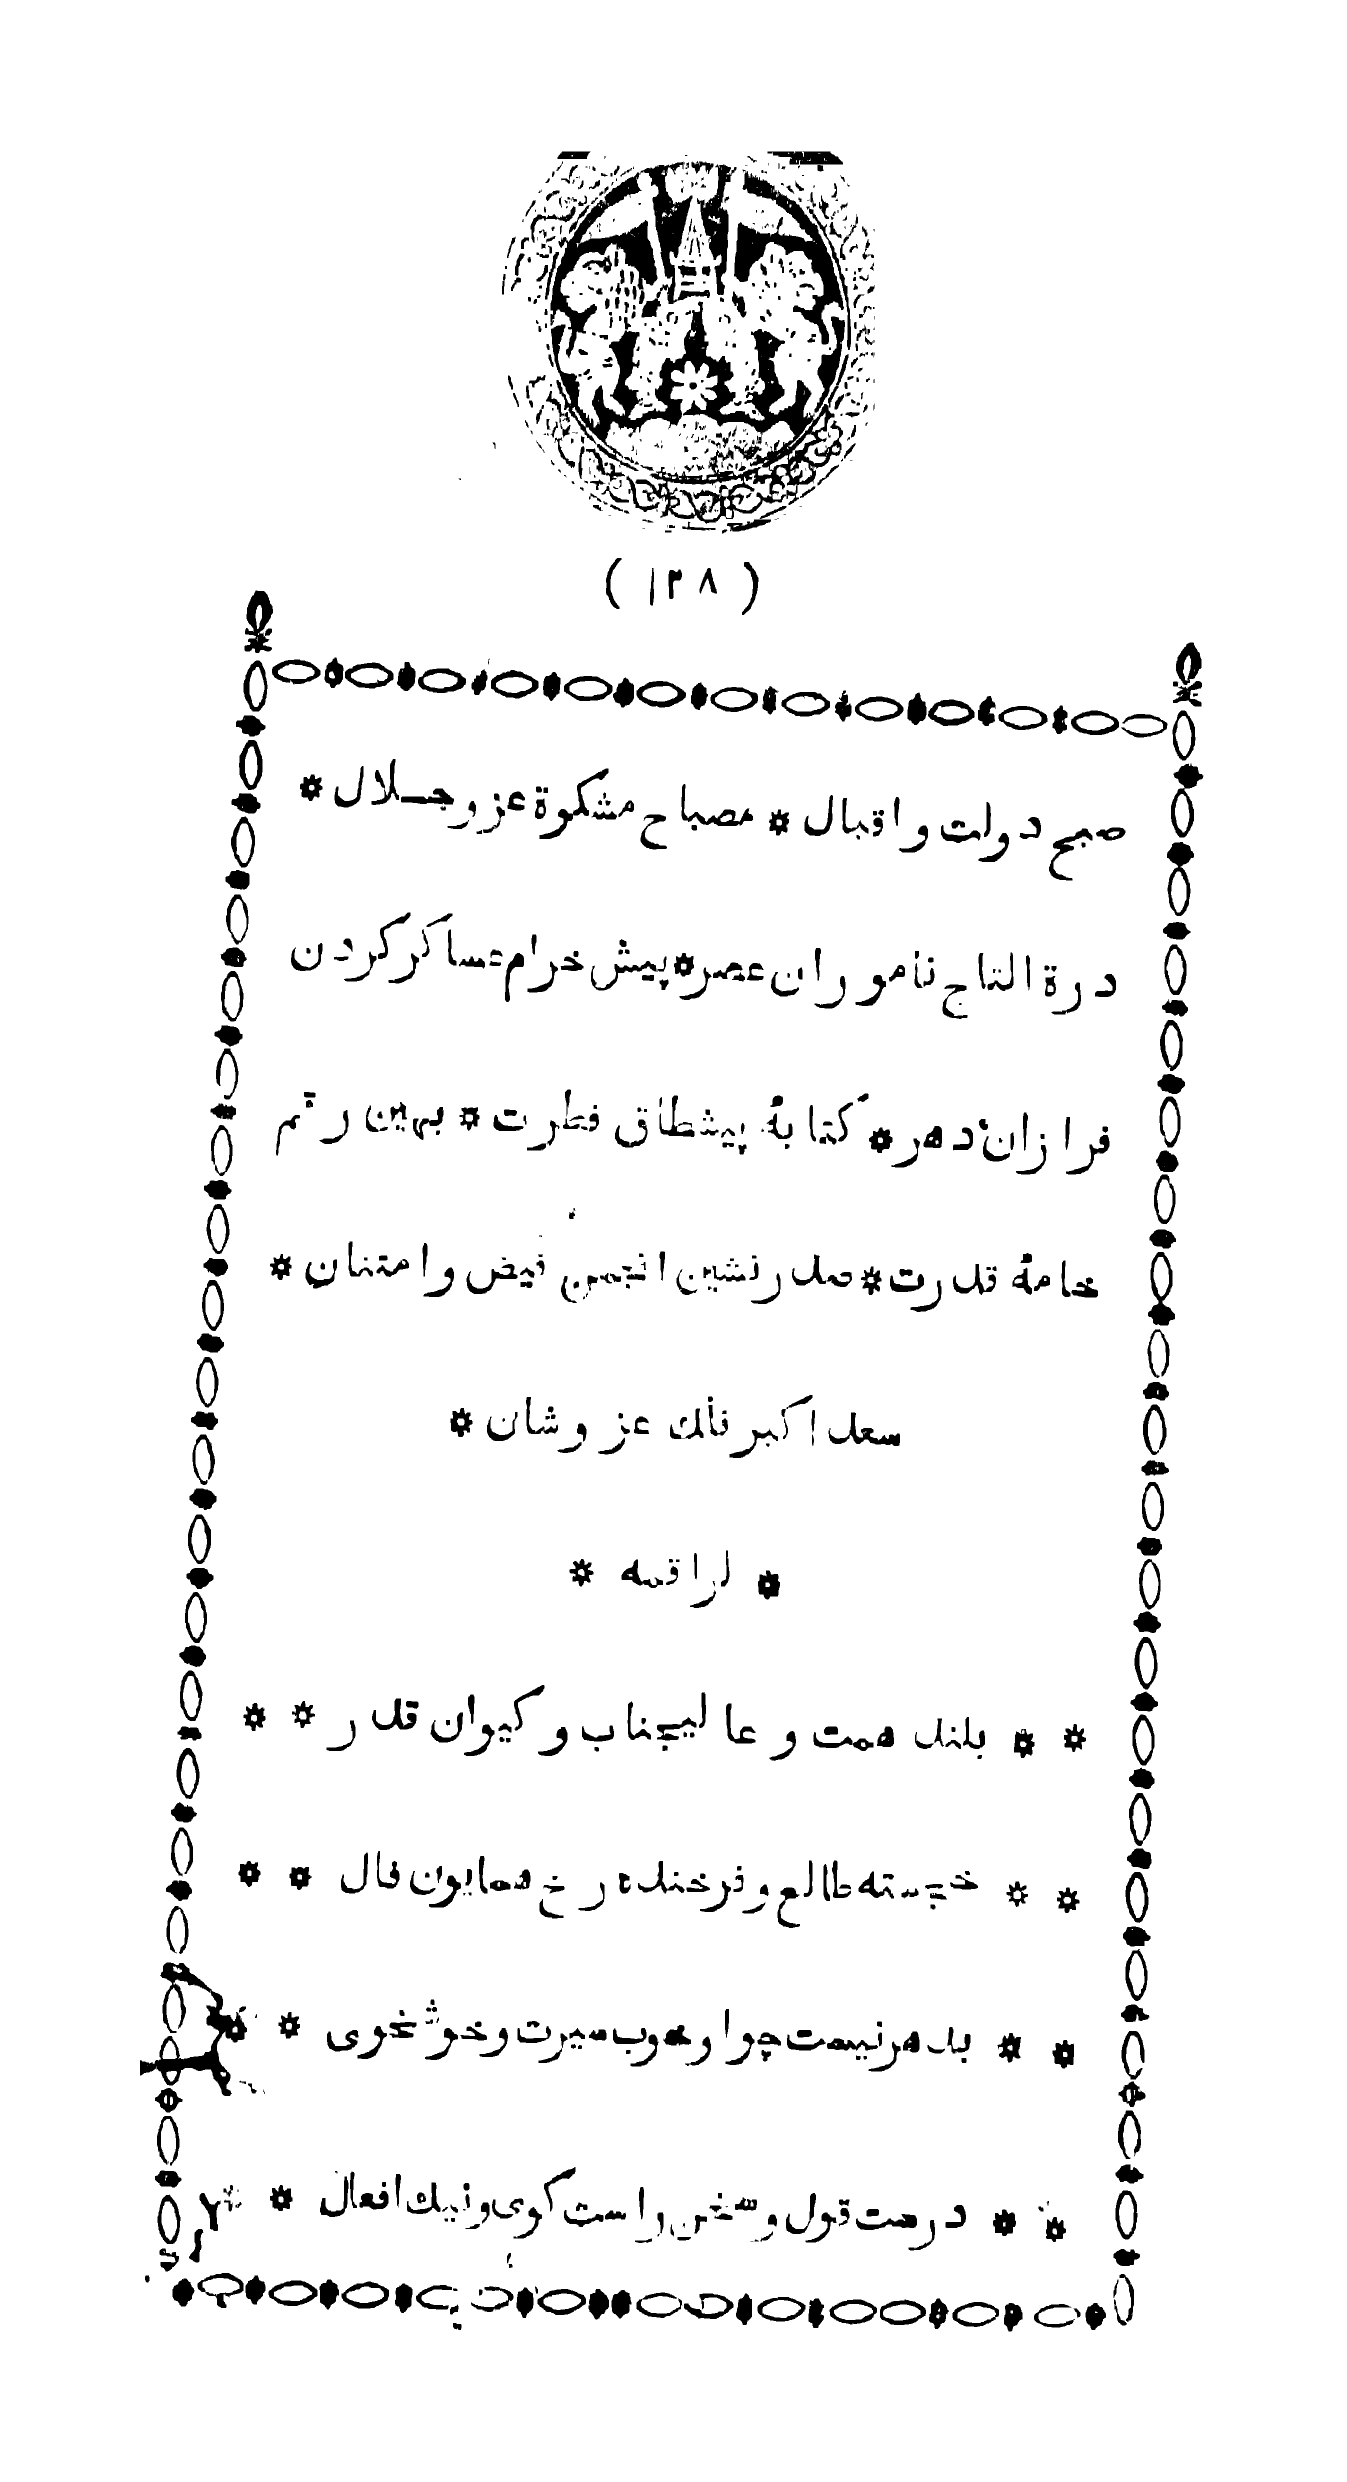 ( ۱۲۸ )
صبح دولت و اقبال * مصباح مشكوة عز و جـلال *
درة التاج نامو ران عصر * پيش خرام عساكر كردن
فرا زان دهر * كتابهٔ پيشطاق فطرت * بهين رقم
خامهٔ قدرت * صدر نشين انجمن فيض و امتنان *
سعد اكبر فلك عز و شان *
* لراقمه *
* * بلند همت و عا ليجناب و كيوان قدر * *
* * خجسته طالع و فرخنده رخ همايون فال * *
* * بدهر نيست چو او خوب سيرت و خوشخوى * *
* * درست قول و سخن راست كوى و نيك افعال * *